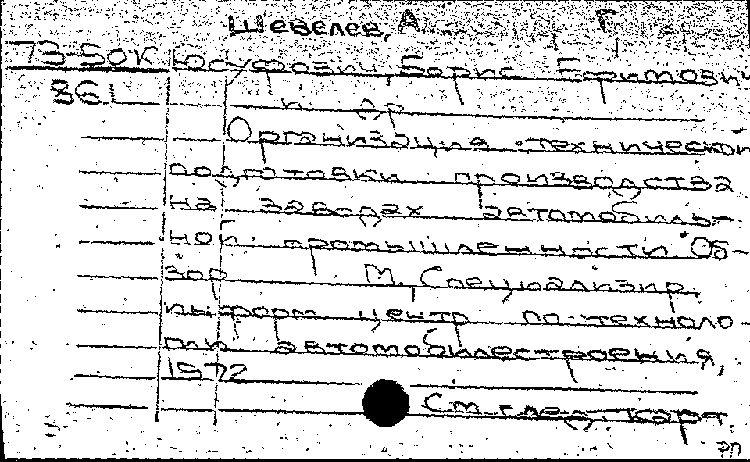 Шевелев, А Г
73-50К Юсуфович, Борис Ефимович
861 и др
Организация технической
подготовки производства
на заводах автомобиль-
ной промышленности. Об-
зор М., Специализир.
информ центр по техноло-
гии автомобилестроения,
1972
См. след. карт.